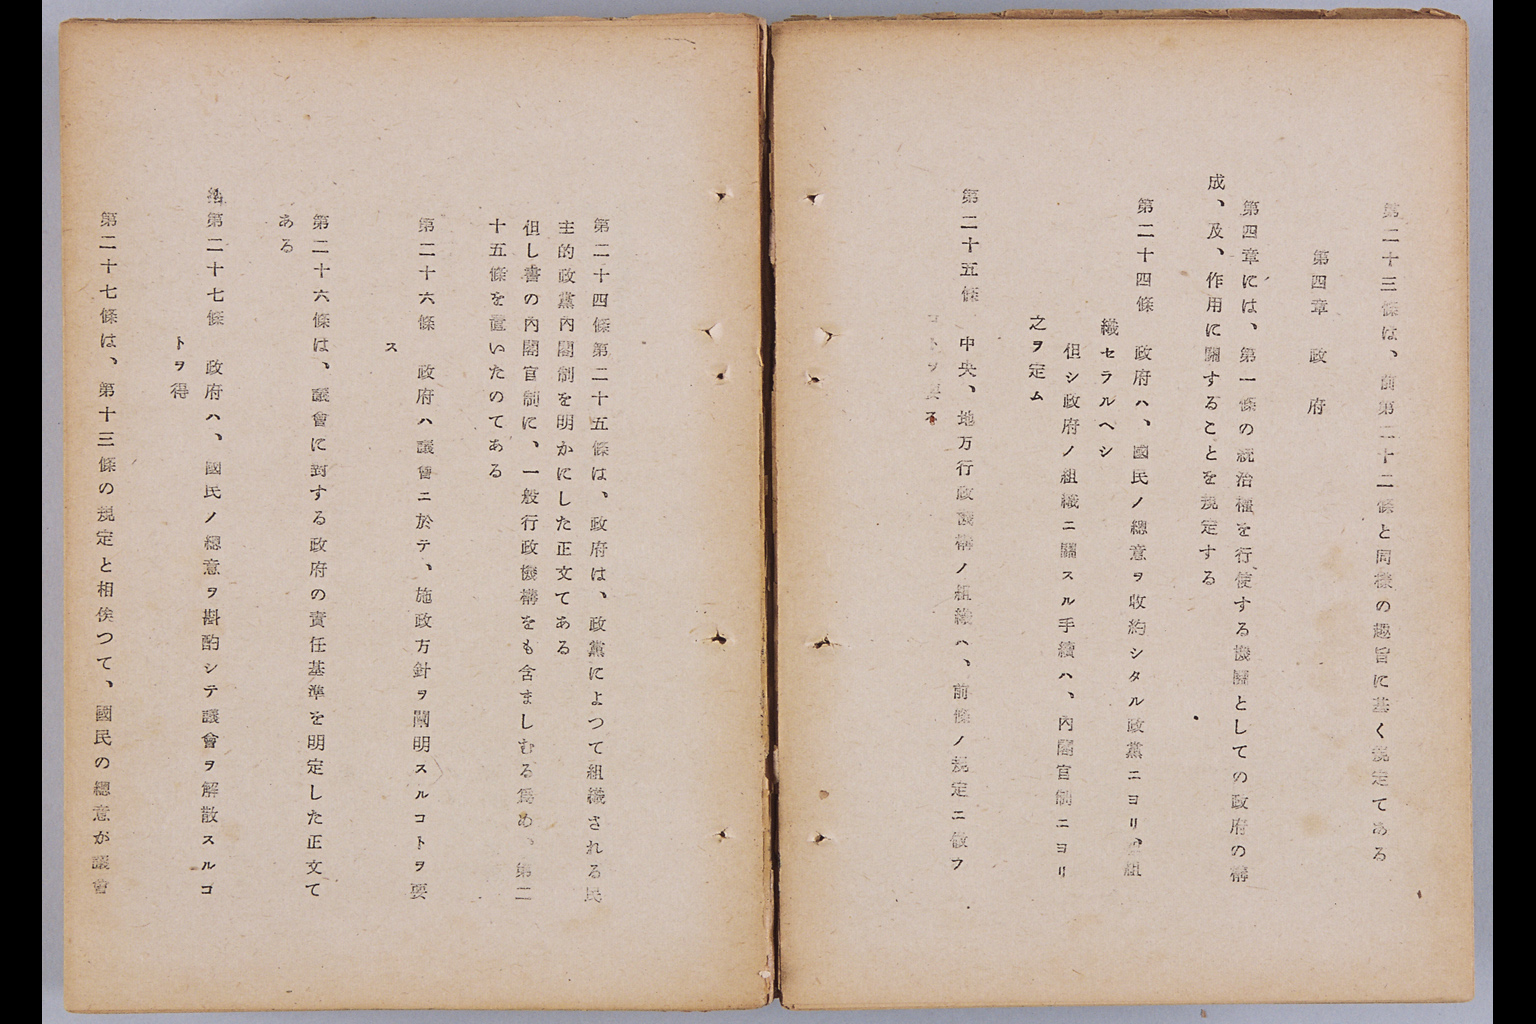 第二十三條は、前第二十二條と同樣の趣旨に基く規定てある
第四章　政　府
第四章には、第一條の統治權を行使する機關としての政府の構
成、及、作用に關することを規定する
第二十四條　政府ハ、國民ノ總意ヲ收約シタル政黨ニヨリ組
織セラルヘシ
但シ政府ノ組織ニ關スル手續ハ、內閣官制ニヨリ
之ヲ定ム
第二十五條　中央、地方行政機構ノ組織ハ、前條ノ規定ニ倣フ
コトヲ要ス
第二十四條第二十五條は、政府は、政黨によつて組織される民
主的政黨內閣制を明かにした正文てある
但し書の內閣官制に、一般行政機構をも含ましむる爲め、第二
十五條を置いたのてある
第二十六條　政府ハ議會ニ於テ、施政方針ヲ闡明スルコトヲ要
ス
第二十六條は、議會に對する政府の責任基準を明定した正文て
ある
第二十七條　政府ハ、國民ノ總意ヲ斟酌シテ議會ヲ解散スルコ
トヲ得
第二十七條は、第十三條の規定と相俟つて、國民の總意が議會